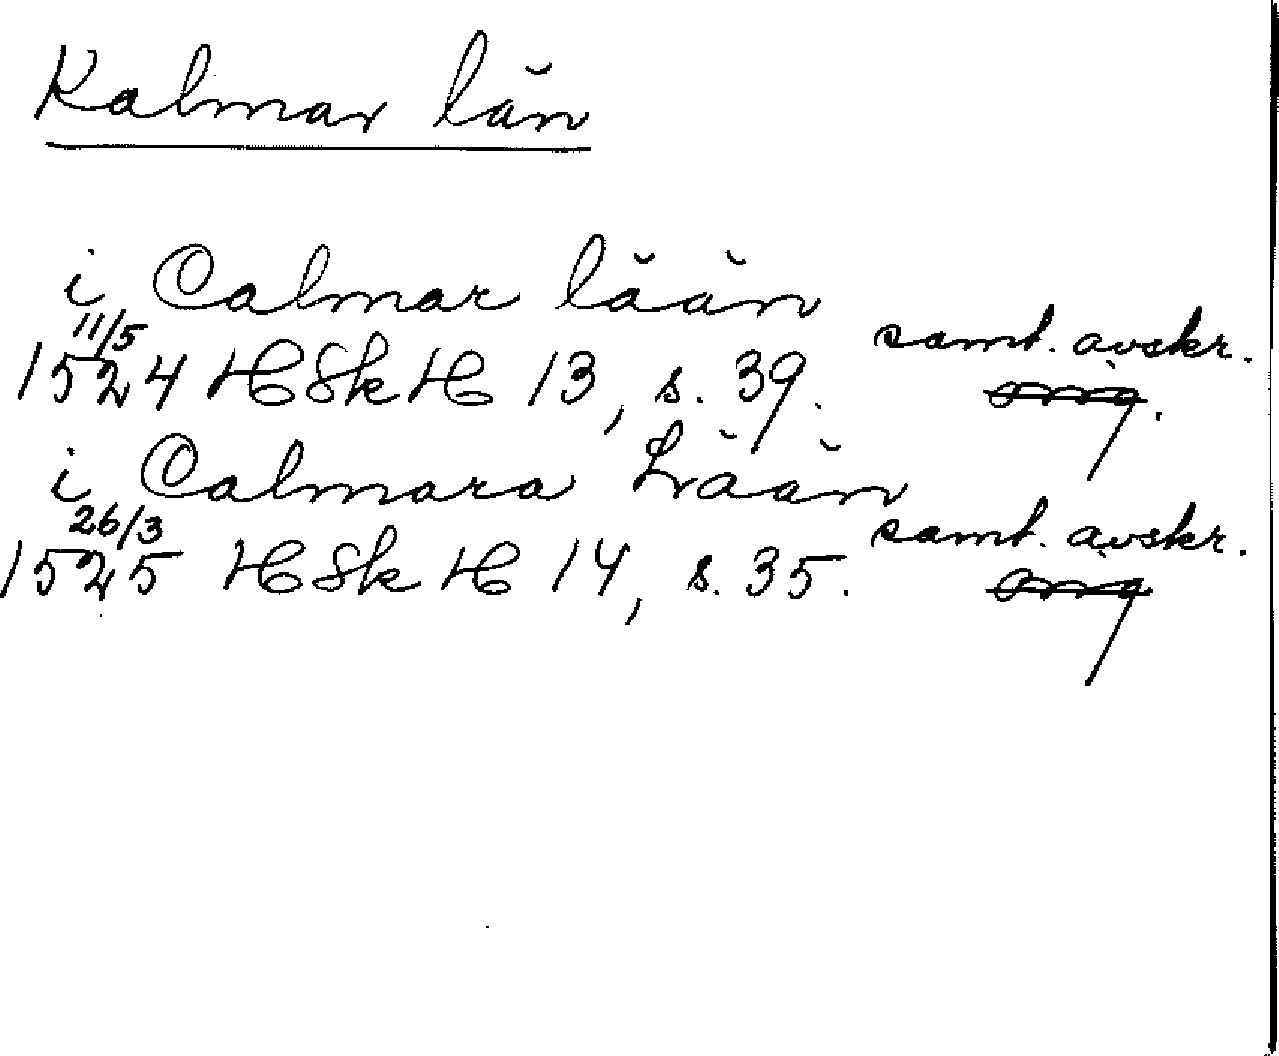 Kalmar län
i Calmar lään
1524 11/5 HSkH 13, s. 39. samt. avskr.
i Calmara Lään
1525 26/3 HSkH 14, s. 35. samt. avskr.